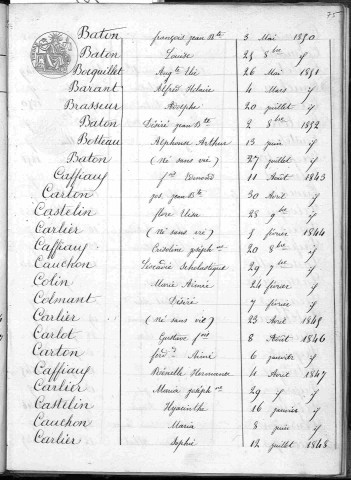 75
Baton françois jean Bte 3 Mai 1850
Baton Louise 25 8bre //
Bosquillet Augte 26 Mai 1851
Barant Alfred Hilaire 4 Mars //
Brasseur Adolphe 20 juillet //
Baton Désiré jean Bte 2 8bre 1852
Botteau Alphonse Arthur 13 juin //
Baton (né sans vie) 27 juillet //
Caffiaux 11 Août 1843
Carton jean Bte 30 Avril //
Castelin flore Elisa 28 9bre //
Carlier (né sans vie) 5 février 1844
Caffiaux joséphine 20 8bre //
Cauchon Léocadie Scholastique 29 7bre //
Colin Marie Aimée 24 février //
Colmant Désiré 7 février //
Carlier (né sans vie) 23 Avril 1845
Carlot Gustave 8 Août 1846
Carton ferd. Aimé 6 janvier //
Caffiaux Hermance 4 Avril 1847
Carlier Maria 29 // //
Castelin Hyacinthe 16 janvier //
Cauchon Maria 8 juin //
Carlier Sophie 12 juillet 1848